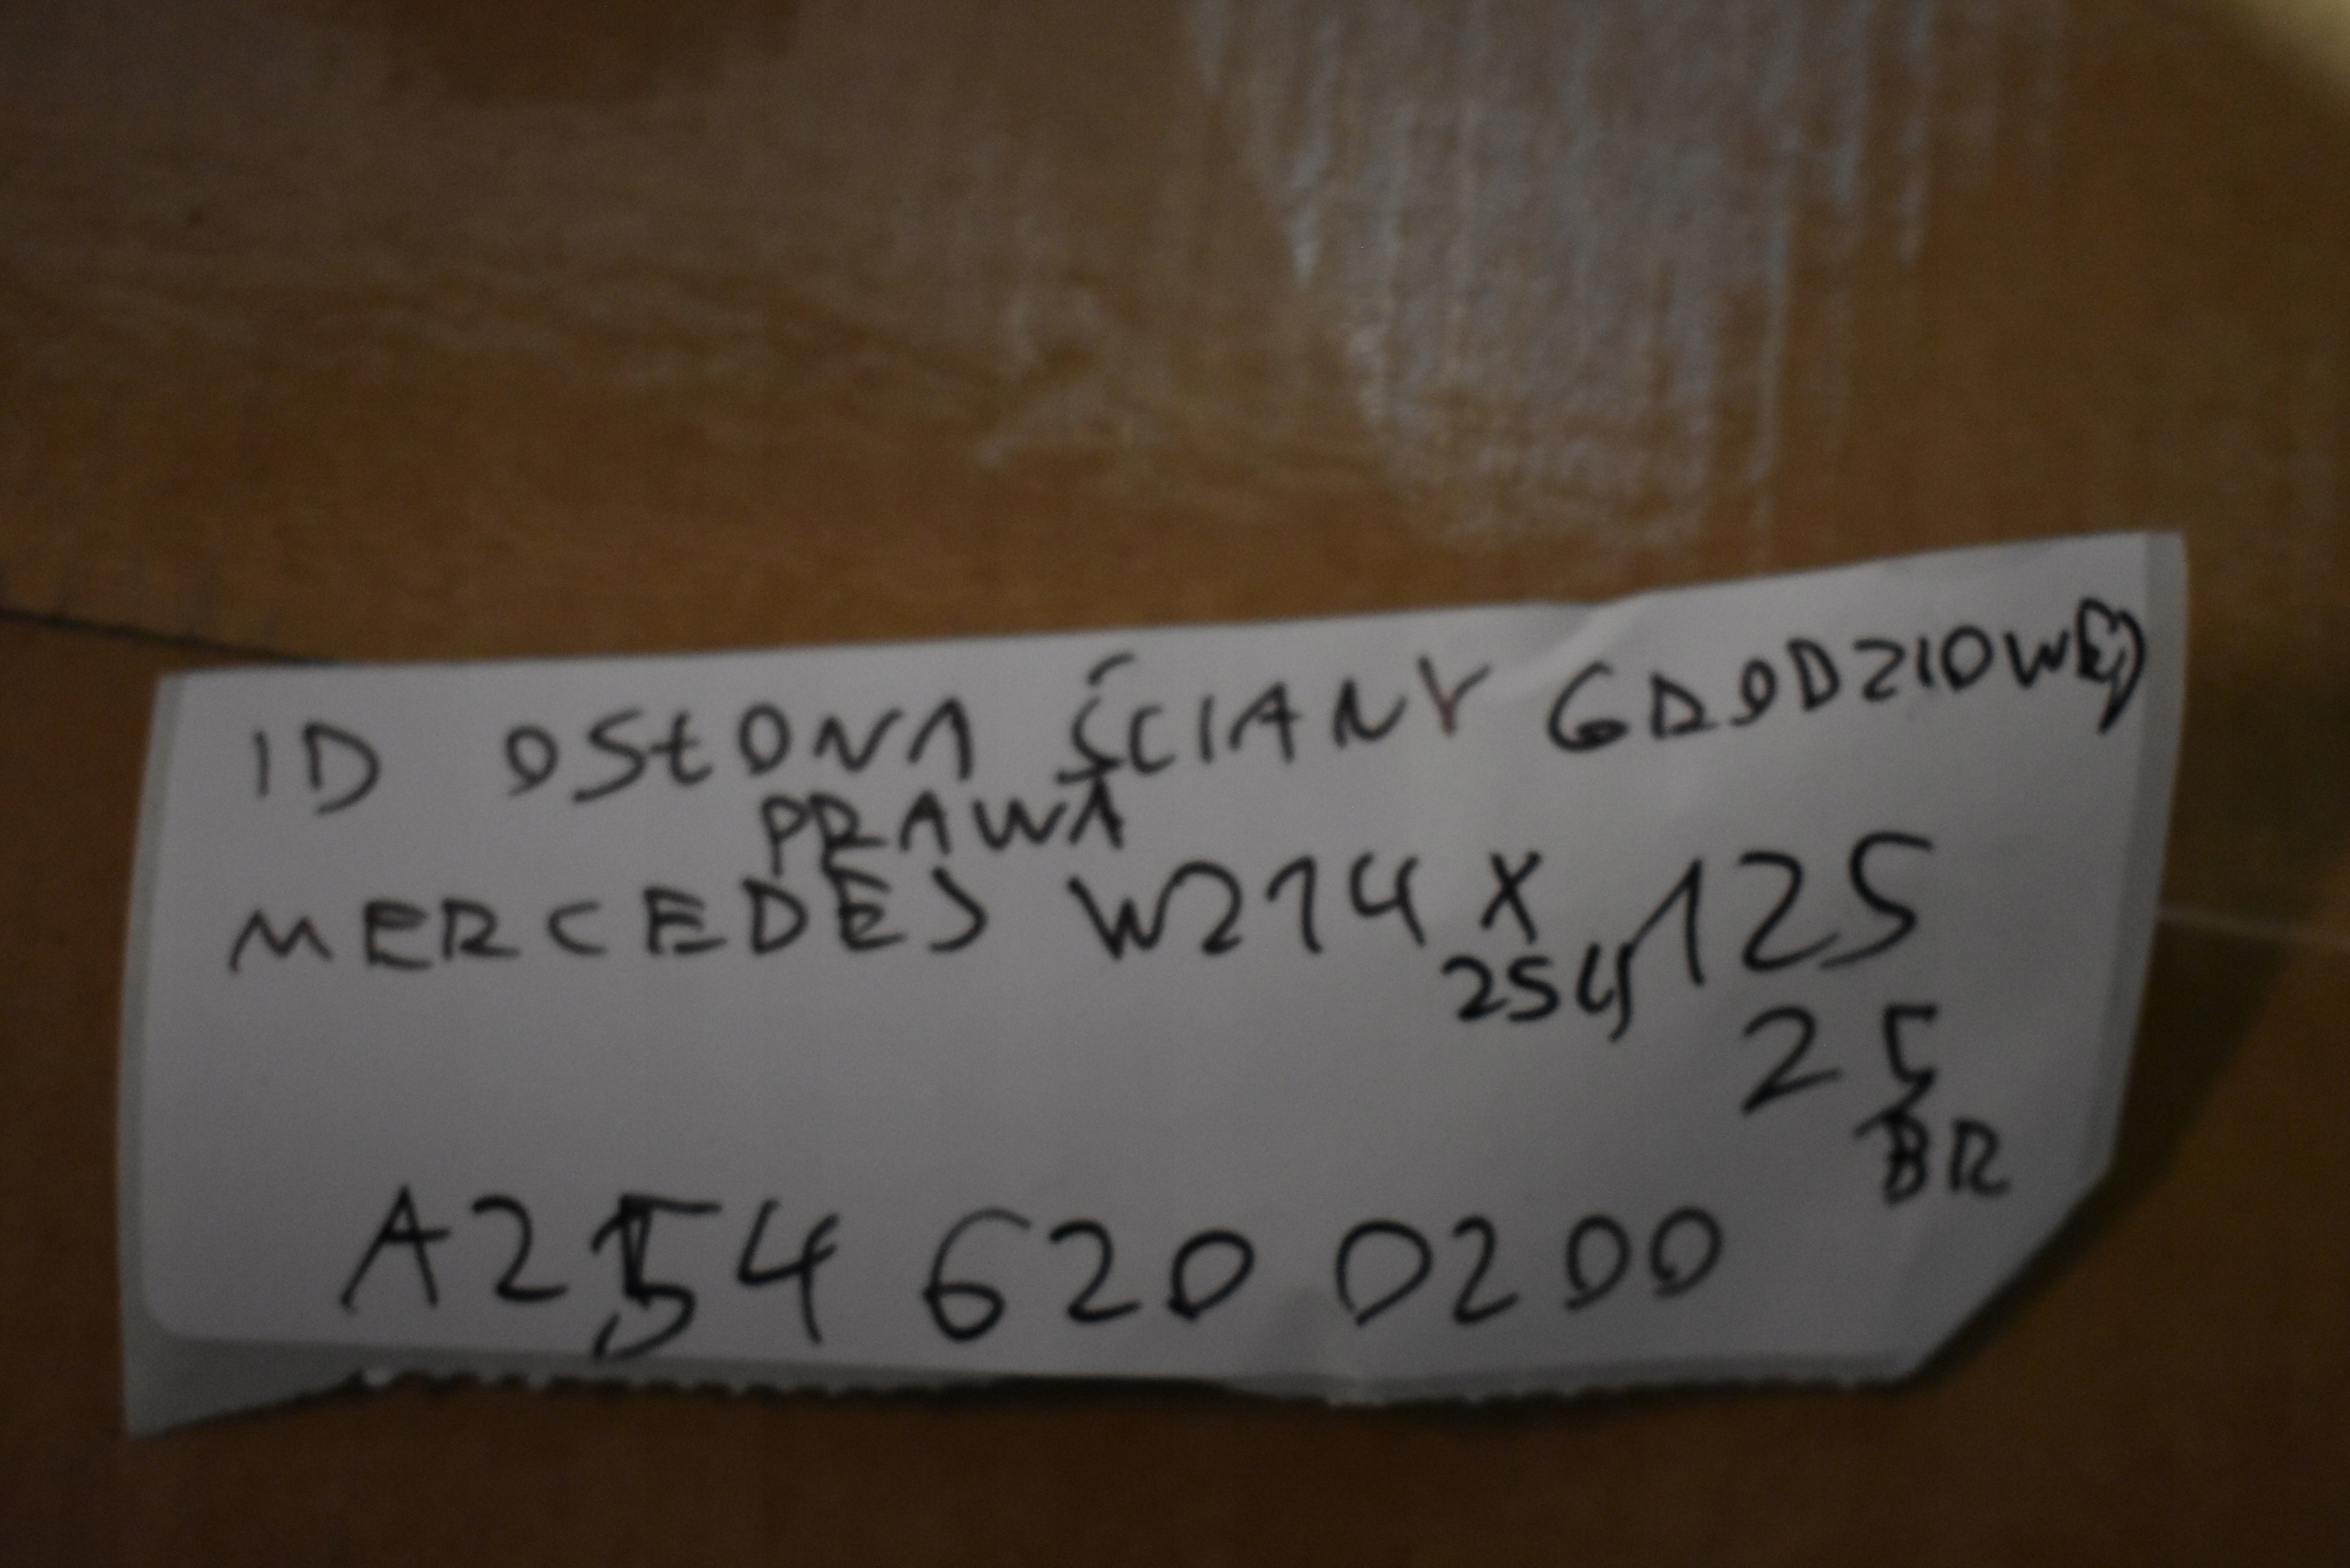 ID OSŁONA ŚCIANY GRODZIOWEJ
PRAWA
MERCEDES W214 X 125
254
25
BR
A254 620 0200